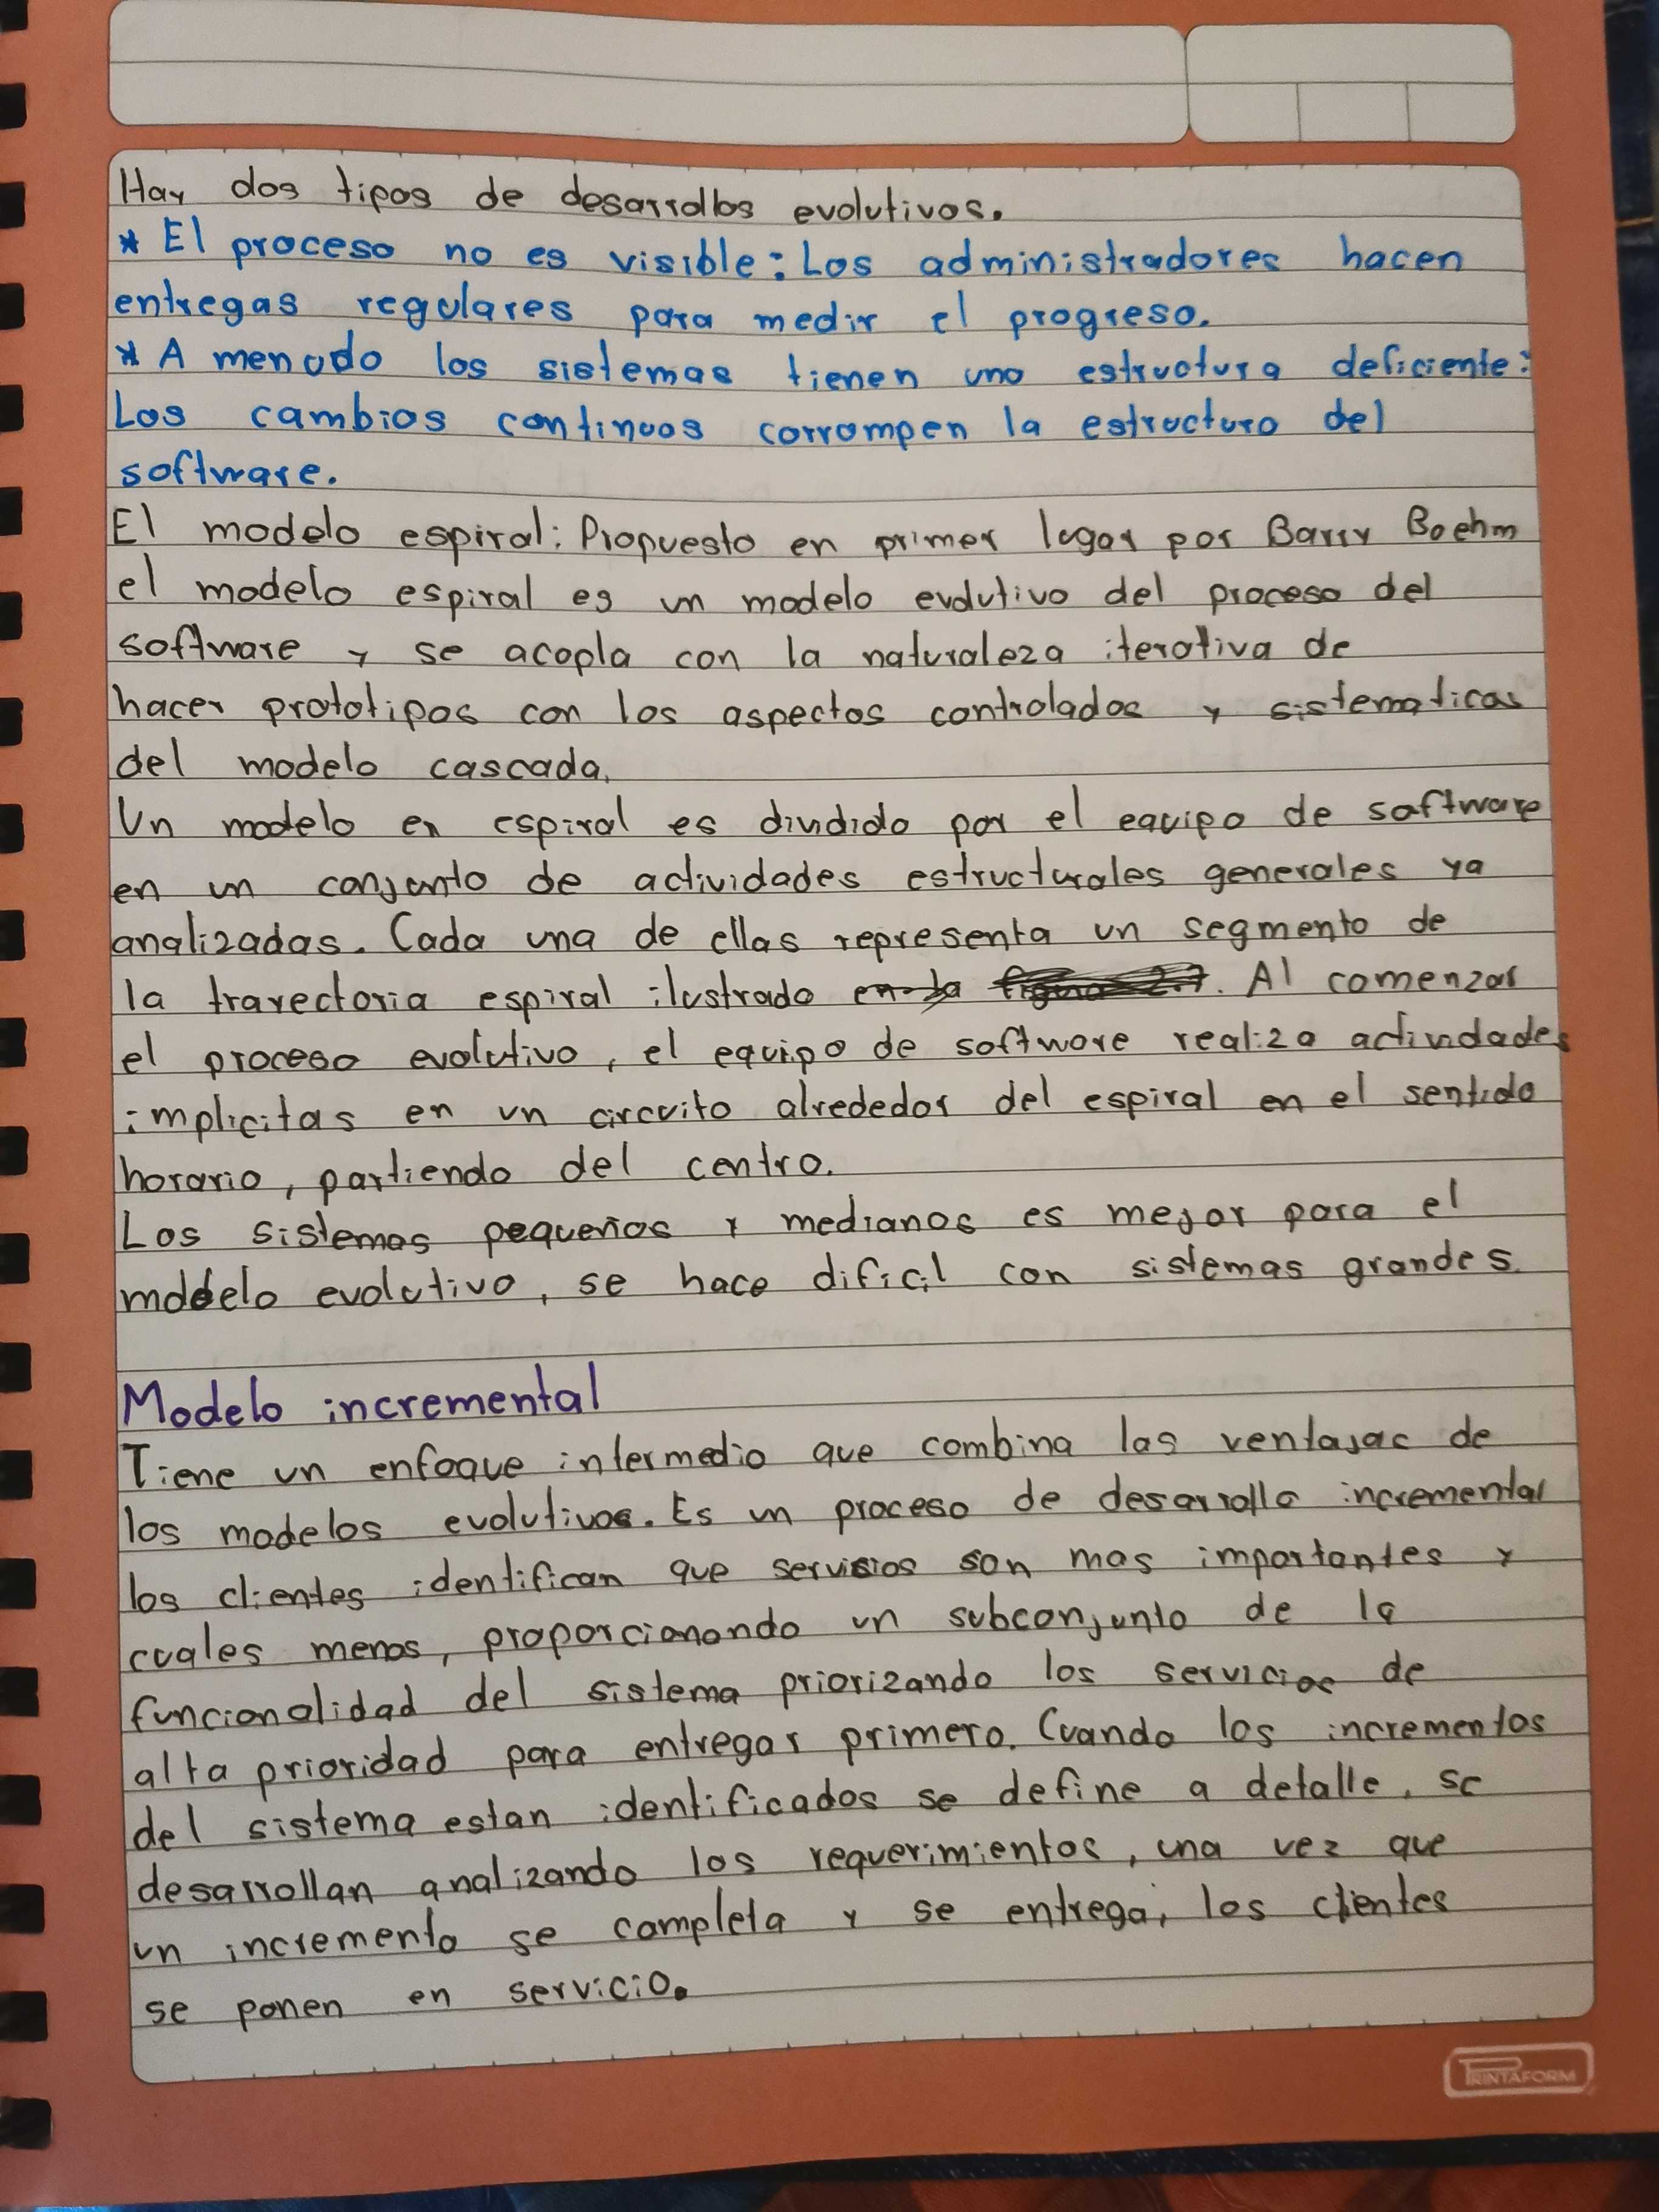 Hay dos tipos de desarrollos evolutivos.
* El proceso no es visible: Los administradores hacen
entregas regulares para medir el progreso.
* A menudo los sistemas tienen una estructura deficiente:
Los cambios continuos corrompen la estructura del
software.
El modelo espiral: Propuesto en primer lugar por Barry Boehm
el modelo espiral es un modelo evolutivo del proceso del
software y se acopla con la naturaleza iterativa de
hacer prototipos con los aspectos controlados y sistematicas
del modelo cascada.
Un modelo en espiral es dividido por el equipo de software
en un conjunto de actividades estructurales generales ya
analizadas. Cada una de ellas representa un segmento de
la trayectoria espiral ilustrado en la figura 2.7. Al comenzar
el proceso evolutivo, el equipo de software realiza actividades
implicitas en un circuito alrededor del espiral en el sentido
horario, partiendo del centro.
Los sistemas pequeños y medianos es mejor para el
modelo evolutivo, se hace dificil con sistemas grandes.
Modelo incremental
Tiene un enfoque intermedio que combina las ventajas de
los modelos evolutivos. Es un proceso de desarrollo incremental
los clientes identifican que servicios son mas importantes y
cuales menos, proporcionando un subconjunto de la
funcionalidad del sistema priorizando los servicios de
alta prioridad para entregar primero. Cuando los incrementos
del sistema estan identificados se define a detalle, se
desarrollan analizando los requerimientos, una vez que
un incremento se completa y se entrega, los clientes
se ponen en servicio.
PRINTAFORM